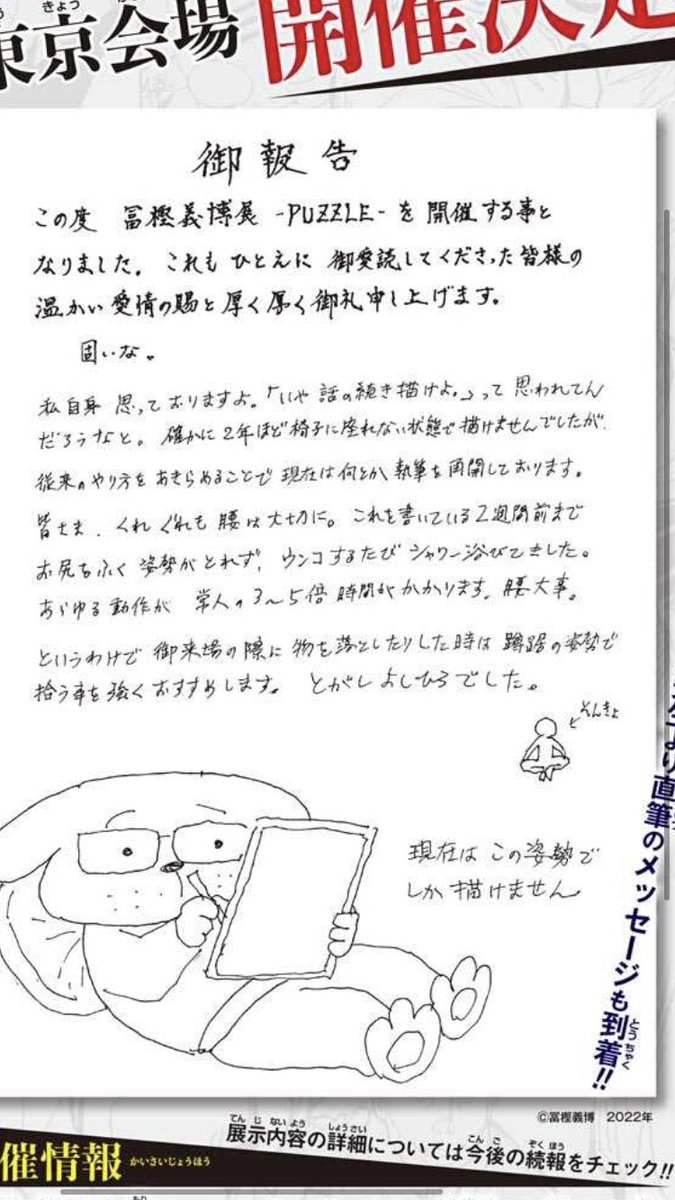 東京会場 開催決定
きょう
御報告
この度 冨樫義博展 -PUZZLE- を開催する事と
なりました。これもひとえに 御愛読してくださった皆様の
温かい愛情の賜と厚く厚く御礼申し上げます。
固いな。
私自身 思っておりますよ。「いや 話の続き描けよ。」って思われてん
だろうなと。確かに2年ほど椅子に座れない状態で描けませんでしたが、
従来のやり方をあきらめることで現在は何とか執筆を再開しております。
皆さま、くれぐれも腰は大切に。これを書いている2週間前まで
お尻もふく姿勢がとれず、ウンコするたびシャワー浴びてきました。
あらゆる動作が 常人の3〜5倍時間がかかります。腰大事。
というわけで 御来場の際に物を落としたりした時は 蹲踞の姿勢で
拾う事を強くおすすめします。 とがしよしひろでした。
そんきょ
現在はこの姿勢で
しか描けません
より直筆のメッセージも到着!!
とうちゃく
©冨樫義博 2022年
てんじないよう しょうさい こんご ぞくほう
展示内容の詳細については今後の続報をチェック!!
催情報 かいさいじょうほう